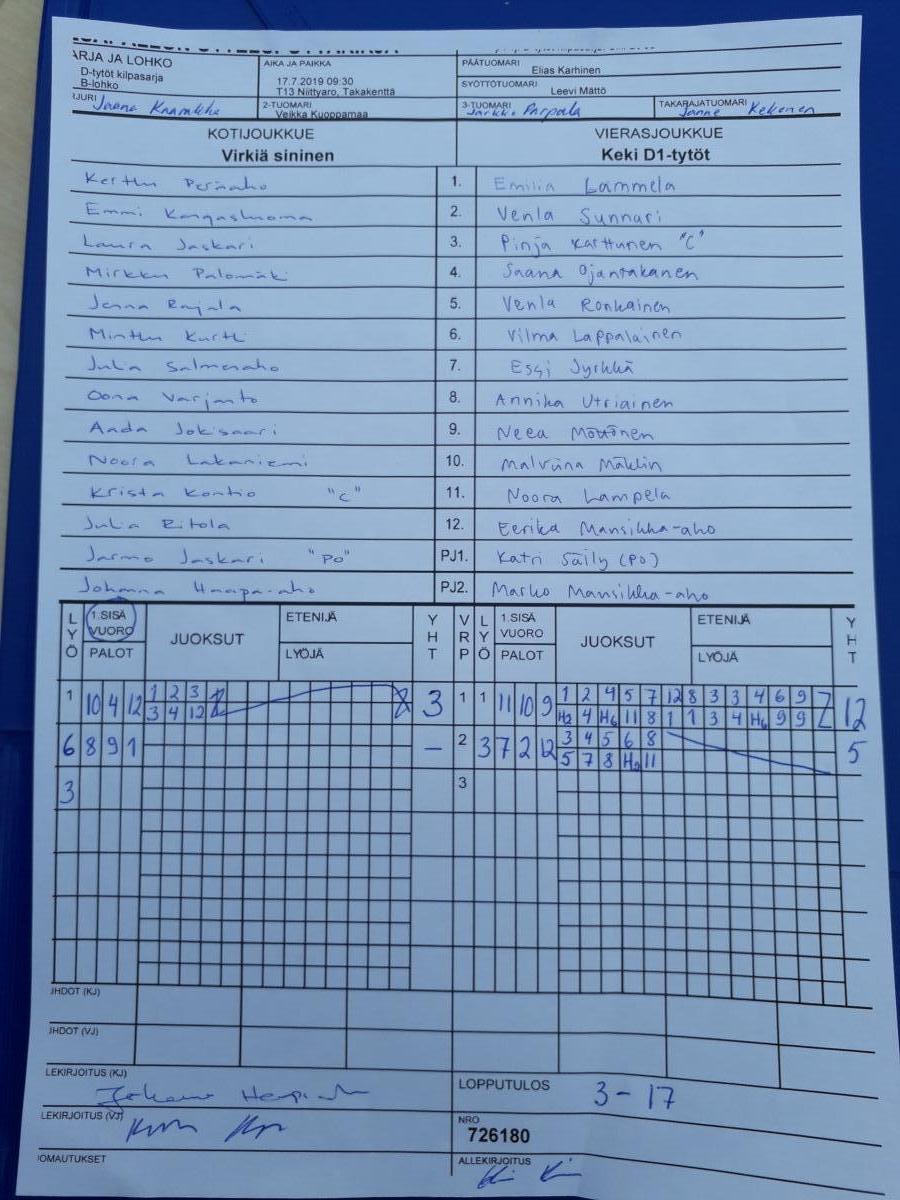 ARJA JA LOHKO
D-tytöt kilpasarja
B-lohko
AIKA JA PAIKKA
17.7.2019 09:30
T13 Niittyaro, Takakenttä
PÄÄTUOMARI
Elias Karhinen
SYÖTTÖTUOMARI
Leevi Mättö
IJURI Jaana
2-TUOMARI
Veikka Kuoppamaa
3-TUOMARI
Jarkko Parpala
TAKARAJATUOMARI
Janne Kekonen
KOTIJOUKKUE VIERASJOUKKUE
Virkiä sininen Keki D1-tytöt
Kerttu Pernaho 1. Emilia Lammela
Emmi Kangasluoma 2. Venla Sunnari
Laura Jaskari 3. Pinja Karttunen "C"
Mirkku Palomäki 4. Saana Ojantakanen
Jenna Rajala 5. Venla Ronkainen
Minttu Kurtti 6. Vilma Lappalainen
Julia Salmenaho 7. Essi Jyrkkä
Oona Varjanto 8. Annika Utriainen
Aada Jokisaari 9. Neea Möttönen
Noora Lakaniemi 10. Malviina Mäklin
Krista Kontio "C" 11. Noora Lampela
Julia Ritola 12. Eerika Mansikka-aho
Jarmo Jaskari "PO" PJ1. Katri Säily (PO)
Johanna Haapa-aho PJ2. Marko Mansikka-aho
LYÖ 1.SISÄ VUORO PALOT JUOKSUT ETENIJÄ LYÖJÄ YHT VRP LYÖ 1.SISÄ VUORO PALOT JUOKSUT ETENIJÄ LYÖJÄ YHT
1 10 4 12 1 2 3 3 1 1 11 10 9 1 2 4 5 7 12 8 3 3 4 6 9 12
3 4 12 H2 4 H6 11 8 1 1 3 4 H6 9 9
6 8 9 1 – 2 3 7 2 12 3 4 5 6 8 5
5 7 8 H2 11
3 3
JHDOT (KJ)
JHDOT (VJ)
LEKIRJOITUS (KJ)
LOPPUTULOS 3-17
LEKIRJOITUS (VJ)
NRO
726180
IOMAUTUKSET
ALLEKIRJOITUS